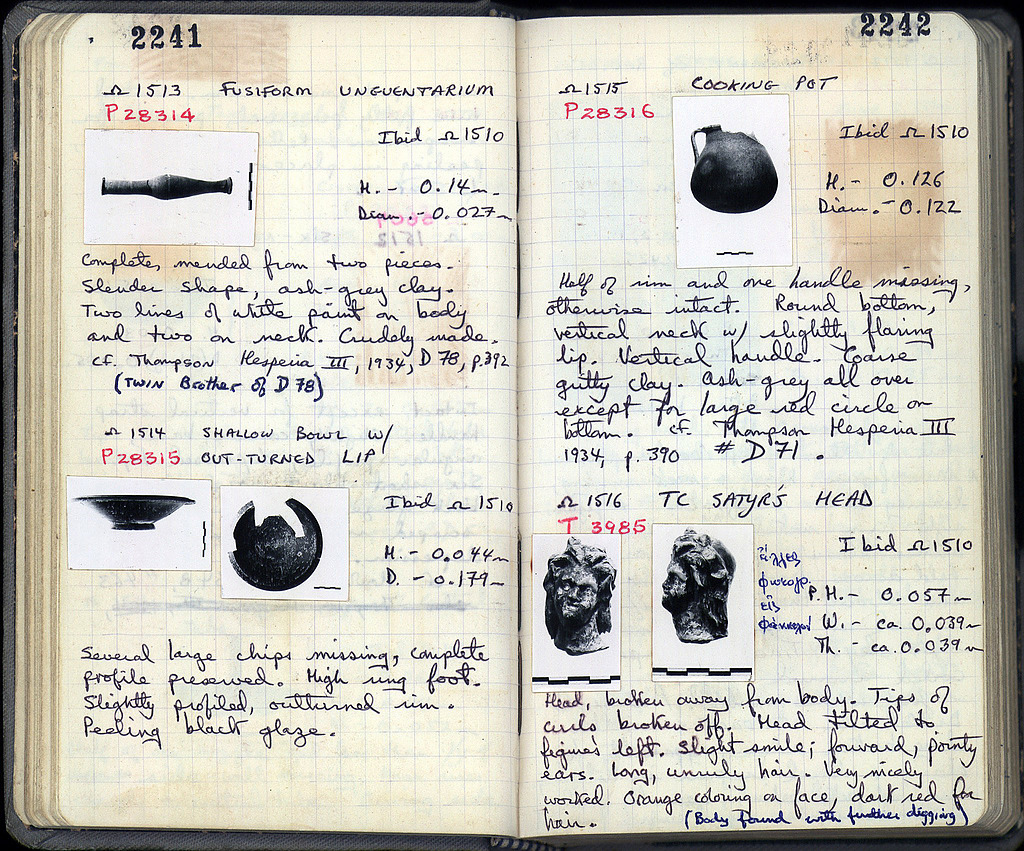 2241
Ω 1513 FUSIFORM UNGUENTARIUM
P28314
Ibid Ω 1510
H. - 0.14m.
Diam. - 0.027m
Complete, mended from two pieces.
Slender shape, ash-grey clay.
Two lines of white paint on body
and two on neck. Crudely made.
cf. Thompson Hesperia III, 1934, D 78, p.392
(TWIN Brother of D 78)
Ω 1514 SHALLOW BOWL W/
P28315 OUT-TURNED LIP
Ibid Ω 1510
H. - 0.044m
D. - 0.179m
Several large chips missing, complete
profile preserved. High ring foot.
Slightly profiled, outturned rim.
Peeling black glaze.
2242
Ω 1515 COOKING POT
P28316
Ibid Ω 1510
H. - 0.126
Diam. - 0.122
Half of rim and one handle missing,
otherwise intact. Round bottom,
vertical neck w/ slightly flaring
lip. Vertical handle. Coarse
gritty clay. Ash-grey all over
except for large red circle on
bottom. cf. Thompson Hesperia III
1934, p. 390 # D 71.
Ω 1516 TC SATYR'S HEAD
T 3985
Ibid Ω 1510
φωτογρ.
εἰς
P.H. - 0.057m
W. - ca. 0.039m
Th. - ca. 0.039m
Head, broken away from body. Tips of
curls broken off. Head tilted to
figure's left. Slight smile; forward, pointy
ears. Long, unruly hair. Very nicely
worked. Orange coloring on face, dark red for
hair. (Body found with further digging)